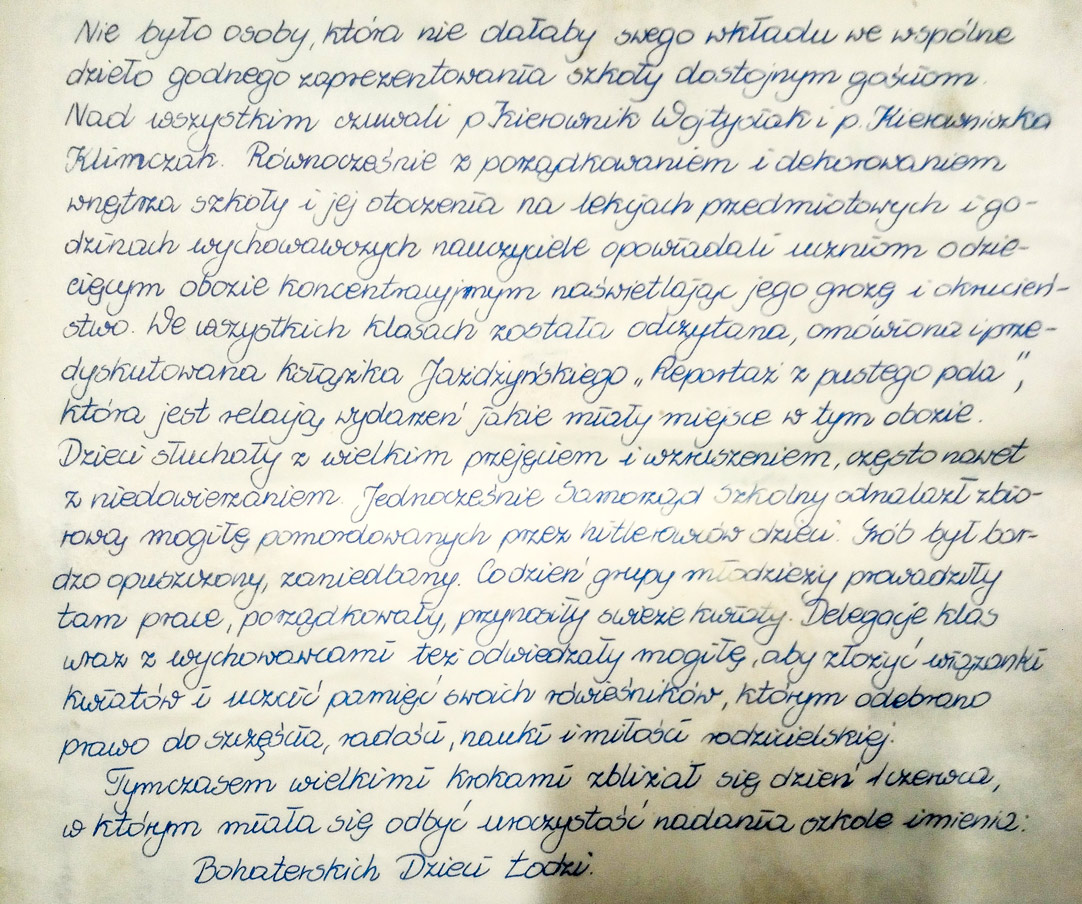 Nie było osoby, która nie dałaby swego wkładu we wspólne
dzieło godnego zaprezentowania szkoły dostojnym gościom.
Nad wszystkim czuwali p Kierownik Wojtysiak i p. Kierowniczka
Klimczak. Równocześnie z porządkowaniem i dekorowaniem
wnętrza szkoły i jej otoczenia na lekcjach przedmiotowych i go-
dzinach wychowawczych nauczyciele opowiadali uczniom o dzie-
cięcym obozie koncentracyjnym naświetlając jego grozę i okrucień-
stwo. We wszystkich klasach została odczytana, omówiona i prze-
dyskutowana książka Jażdżyńskiego „Reportaż z pustego pola",
która jest relacją wydarzeń jakie miały miejsce w tym obozie.
Dzieci słuchały z wielkim przejęciem i wzruszeniem, często nawet
z niedowierzaniem. Jednocześnie Samorząd Szkolny odnalazł zbio-
rową mogiłę pomordowanych przez hitlerowców dzieci. Grób był bar-
dzo opuszczony, zaniedbany. Codzień grupy młodzieży prowadziły
tam prace, porządkowały, przynosiły świeże kwiaty. Delegacje klas
wraz z wychowawcami też odwiedzały mogiłę, aby złożyć wiązanki
kwiatów i uczcić pamięć swoich rówieśników, którym odebrano
prawo do szczęścia, radości, nauki i miłości rodzicielskiej.
Tymczasem wielkimi krokami zbliżał się dzień 1 czerwca,
w którym miała się odbyć uroczystość nadania szkole imienia:
Bohaterskich Dzieci Łodzi.